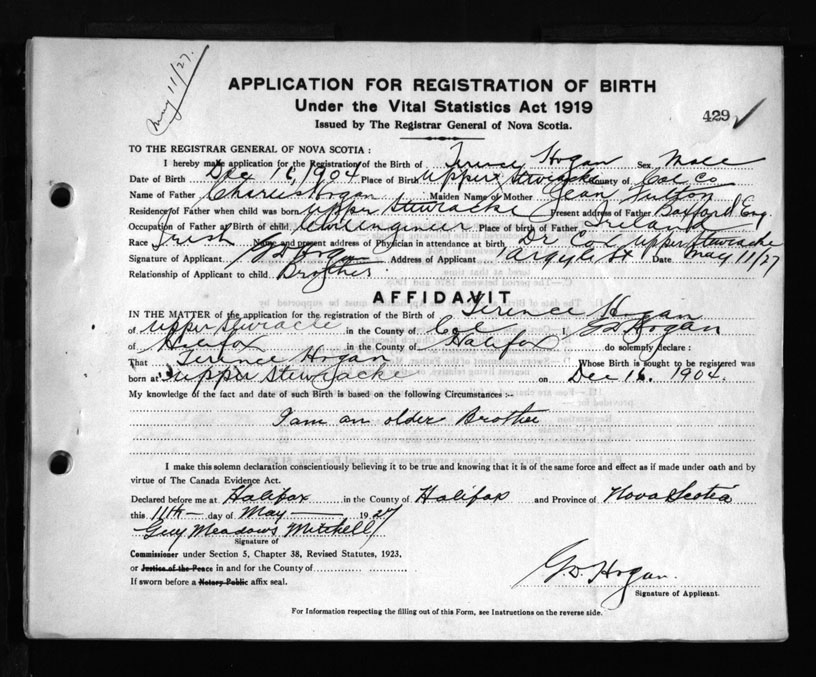 May 11/27.
APPLICATION FOR REGISTRATION OF BIRTH
Under the Vital Statistics Act 1919
429
Issued by The Registrar General of Nova Scotia.
TO THE REGISTRAR GENERAL OF NOVA SCOTIA :
I hereby make application for the Registration of the Birth of Terence Hogan Sex Male
Date of Birth Dec 16, 1904 Place of Birth Upper Stewiacke County of Col Co
Name of Father Charles Hogan Maiden Name of Mother Jean Fulton
Residence of Father when child was born Upper Stewiacke Present address of Father Eng
Occupation of Father at Birth of child Civil Engineer Place of birth of Father Ireland
Race Irish Name and present address of Physician in attendance at birth Dr Cox Upper Stewiacke
Signature of Applicant G D Hogan Address of Applicant Argyle St Date May 11/27
Relationship of Applicant to child Brother
AFFIDAVIT
IN THE MATTER of the application for the registration of the Birth of Terence Hogan
of Upper Stewiacke in the County of Col I, G D Hogan
of Halifax in the County of Halifax do solemnly declare :
That Terence Hogan Whose Birth is sought to be registered was
born at Upper Stewiacke on Dec 16. 1904.
My knowledge of the fact and date of such Birth is based on the following Circumstances :-
I am an older Brother
I make this solemn declaration conscientiously believing it to be true and knowing that it is of the same force and effect as if made under oath and by
virtue of The Canada Evidence Act.
Declared before me at Halifax in the County of Halifax and Province of Nova Scotia
this 11th day of May 1927
Guy Meadows Mitchell
Signature of
Commissioner under Section 5, Chapter 38, Revised Statutes, 1923.
or Justice of the Peace in and for the County of
If sworn before a Notary Public affix seal.
G. D. Hogan.
Signature of Applicant.
For Information respecting the filling out of this Form, see Instructions on the reverse side.